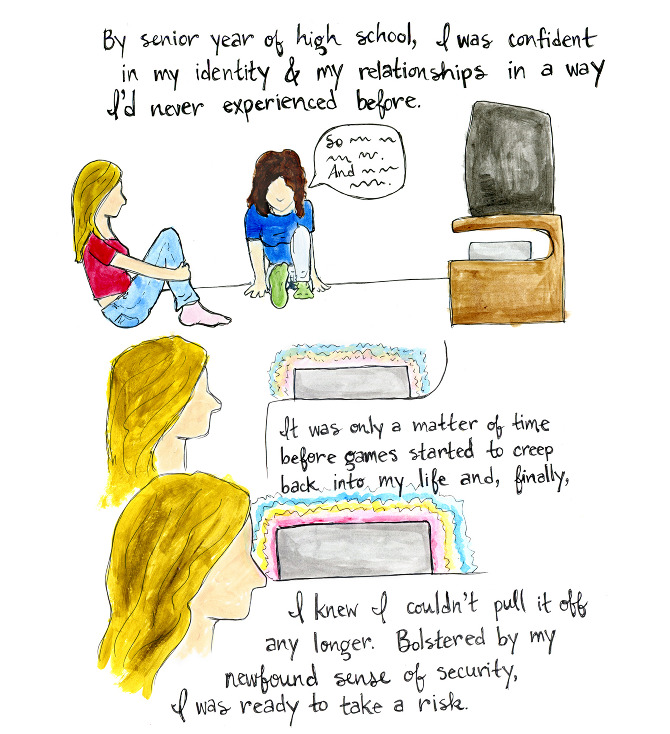 By senior year of high school, I was confident
in my identity & my relationships in a way
I'd never experienced before.
So
And
It was only a matter of time
before games started to creep
back into my life and, finally,
I knew I couldn't pull it off
any longer. Bolstered by my
newfound sense of security,
I was ready to take a risk.